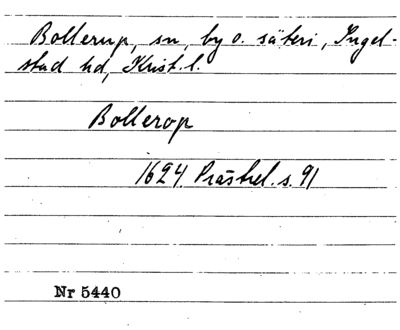 Bollerup, sn, by o. säteri, Ingel-
stad hd, Krist. l.
Bollerop
1624 Prästrel. s. 91
Nr 5440